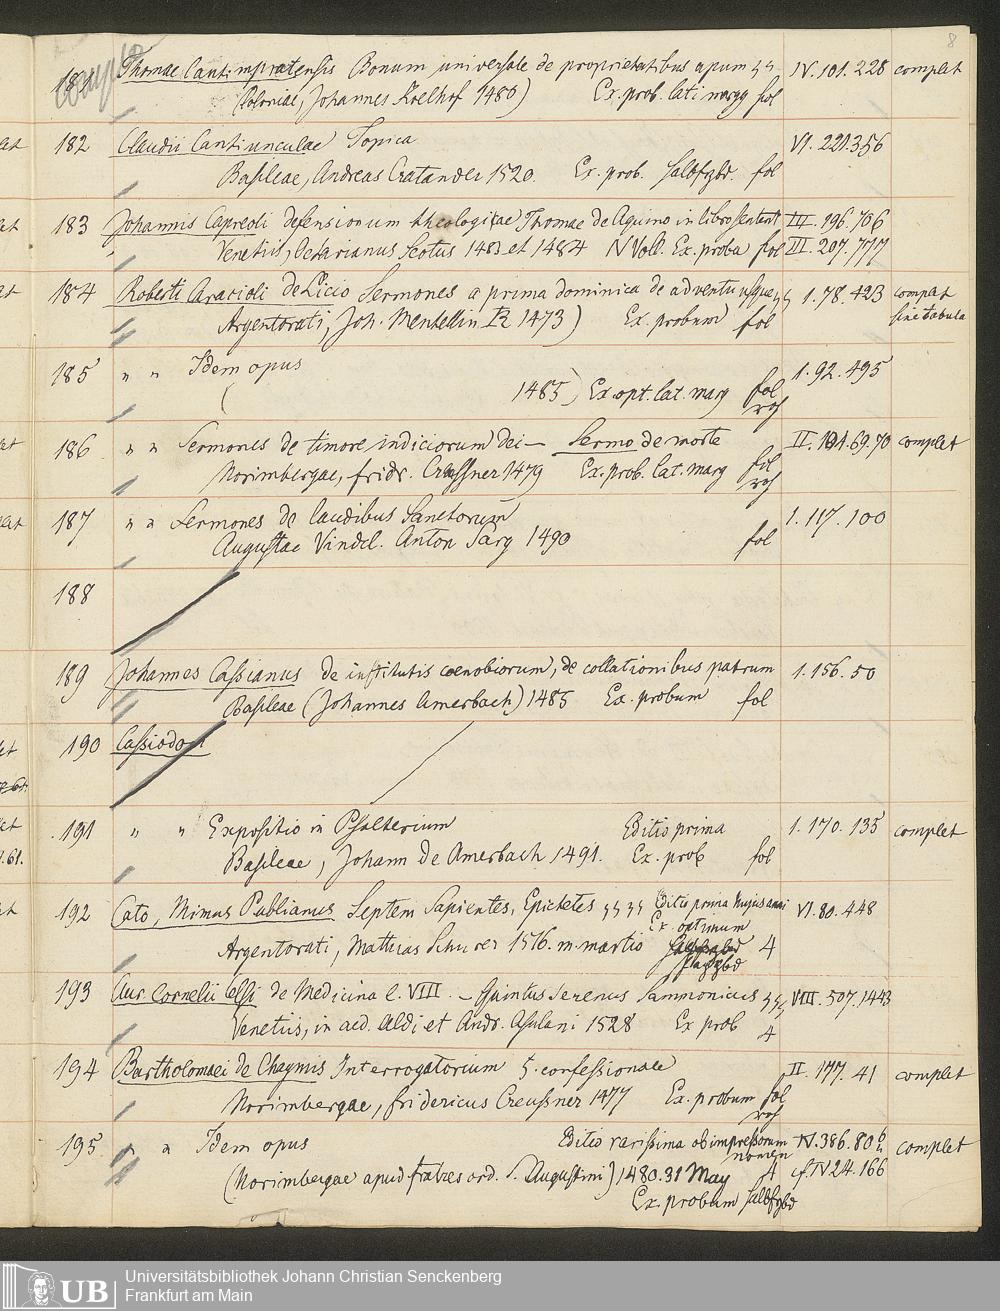 8
181 Thomae Cantimpratensis Bonum universale de proprietatibus apum IV. 101. 228 complet
(Coloniae, Johannes Koelhof 1480) Ex. prob. lati marg fol
182 Claudii Cantiunculae Topica VI. 221.356
Basileae, Andreas Cratander 1520. Ex. prob. halbfzbd. fol
183 Johannis Capreoli defensionum theologicae Thomae de Aquino in libro sentent III. 196. 706
Venetiis, Octavianus Scotus 1483 et 1484 IV Voll. Ex. proba fol III. 207. 777
184 Roberti Caracioli de Licio Sermones a prima dominica de adventu usque 1. 78. 423 complet
Argentorati, Joh. Mentellin 1473) Ex. probum fol sine tabula
185 " " Idem opus 1. 92. 495
( 1485) Ex. opt. lat. marg fol
186 " " Sermones de timore iudiciorum dei — Sermo de morte II. 69.70 complet
Norimbergae, fridr. Creussner 1479 Ex. prob. lat. marg fol
187 " " Sermones de laudibus Sanctorum 1. 117. 100
Augustae Vindel. Anton Sarg 1490 fol
188
189 Johannes Cassianus de institutis coenobiorum, de collationibus patrum 1. 156. 50
Basileae (Johannes Amerbach) 1485 Ex. probum fol
190 Cassiodori
191 " " Expositio in Psalterium Editio prima 1. 170. 135 complet
Basileae, Johann de Amerbach 1491. Ex. prob fol
192 Cato, Mimus Publianus Septem Sapientes, Epictetes Editio prima hujus anni VI. 80. 448
Ex. optimum
Argentorati, Mathias Schurer 1516. m. martio 4
193 Aur. Cornelii Celsi de Medicina l. VIII. — Quintus Serenus Sammonicus VIII. 507. 1443
Venetiis, in aed. Aldi et Andr. Asulani 1528 Ex prob 4
194 Bartholomaei de Chaymis Interrogatorium s. confessionale II. 177. 41 complet
Norimbergae, fridericus Creussner 1477 Ex. probum fol
195 " " Idem opus Editio rarissima ob impressorum nomen IV. 386. 80 complet
(Norimbergae apud fratres ord. S. Augustini) 1480. 31 May 4 cf. IV 24. 166
Ex. probum halbfzbd
UB Universitätsbibliothek Johann Christian Senckenberg
Frankfurt am Main